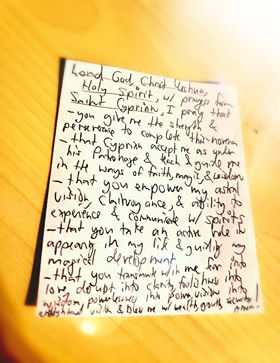 Lord God, Christ Yeshua,
Holy Spirit, w/ prayers from
Saint Cyprian, I pray that
- you give me the strength &
perseverance to complete this novena
- that Cyprian accept me as under
his Patronage & teach & guide me
in the ways of faith, magic, & wisdom
- that you empower my astral
vision, clairvoyance, & ability to
experience & communicate w/ spirits
- that you take an active role in
appearing in my life & guiding my
magical development
- that you transmute w/in me fear into
love, doubt into clarity, foolishness into
wisdom, powerlessness into power, vision into
enlightened vision & bless me w/ wealth, growth, security!
Amen.